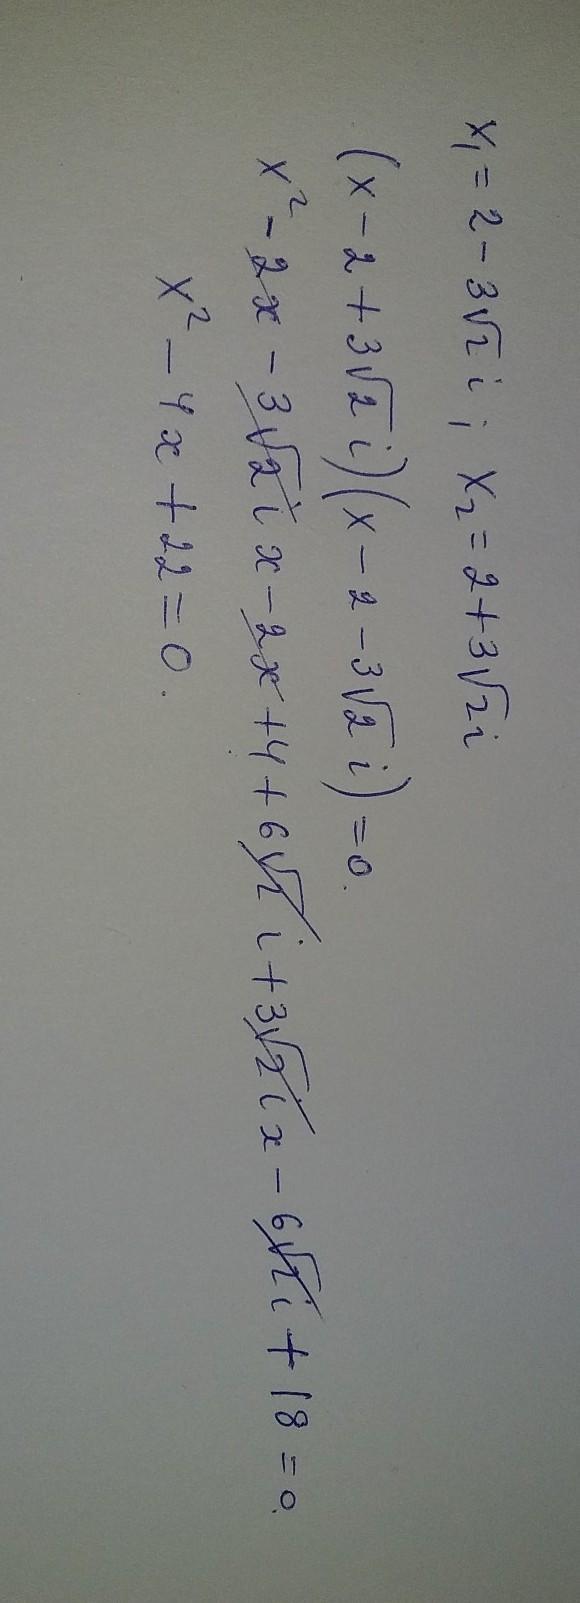 x₁ = 2 - 3√2 i ; x₂ = 2 + 3√2 i
(x - 2 + 3√2 i)(x - 2 - 3√2 i) = 0.
x² - 2x - 3√2 i x - 2x + 4 + 6√2 i + 3√2 i x - 6√2 i + 18 = 0.
x² - 4x + 22 = 0.